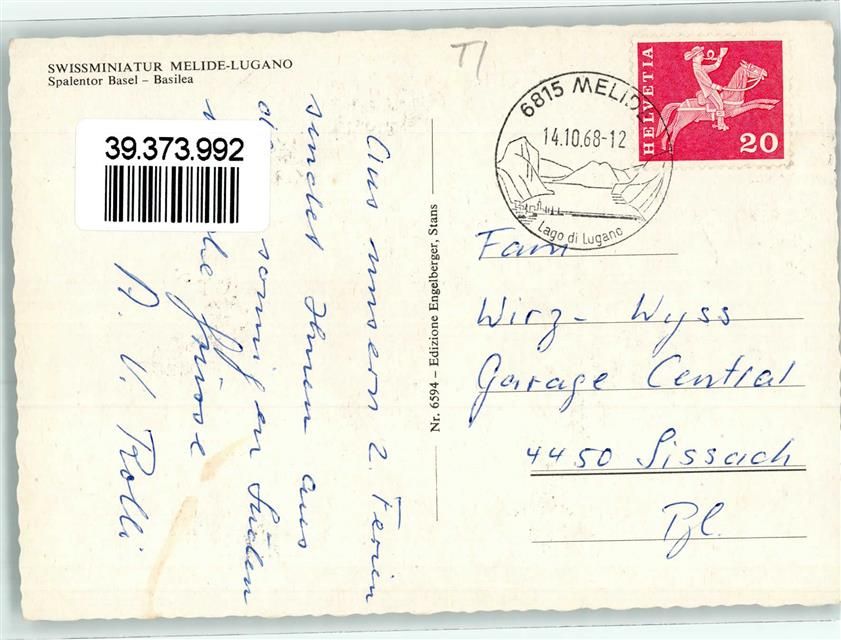 SWISSMINIATUR MELIDE-LUGANO
Spalentor Basel – Basilea
TI
39.373.992
Aus unsern 2. Ferien
sendet Ihnen aus
sonnigen Süden
Grüsse
V. Rolli
Nr. 6594 – Edizione Engelberger, Stans
6815 MELIDE
14.10.68-12
Lago di Lugano
HELVETIA
20
Fam
Wirz - Wyss
Garage Central
4450 Sissach
Bl.